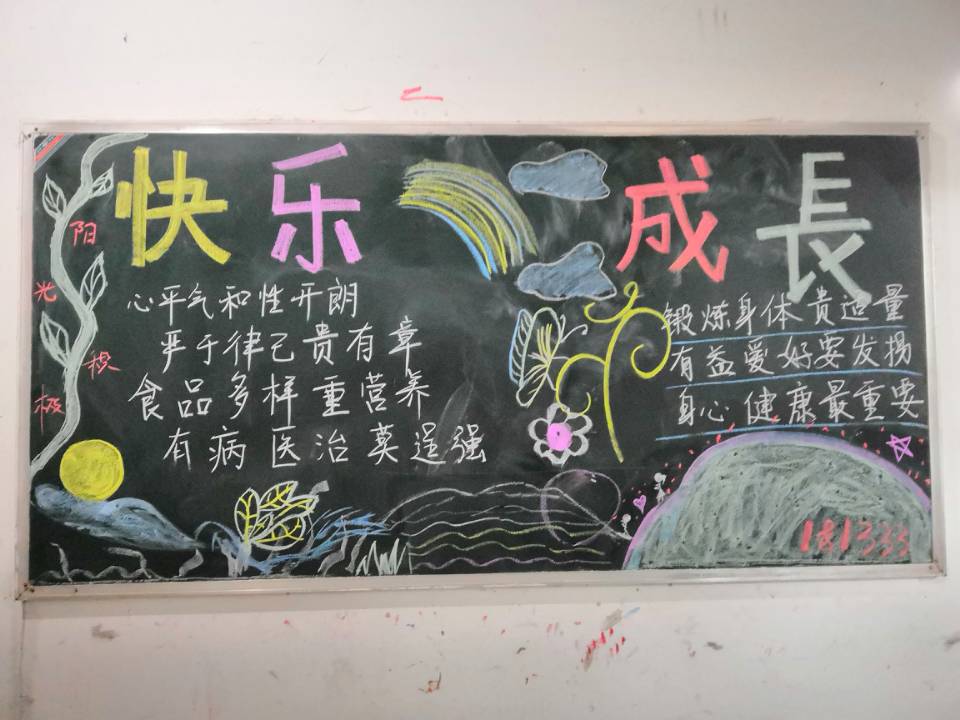 快乐成長
阳光积极
心平气和性开朗
严于律己贵有章
食品多样重营养
有病医治莫逞强
锻炼身体贵适量
有益爱好要发扬
身心健康最重要
181333